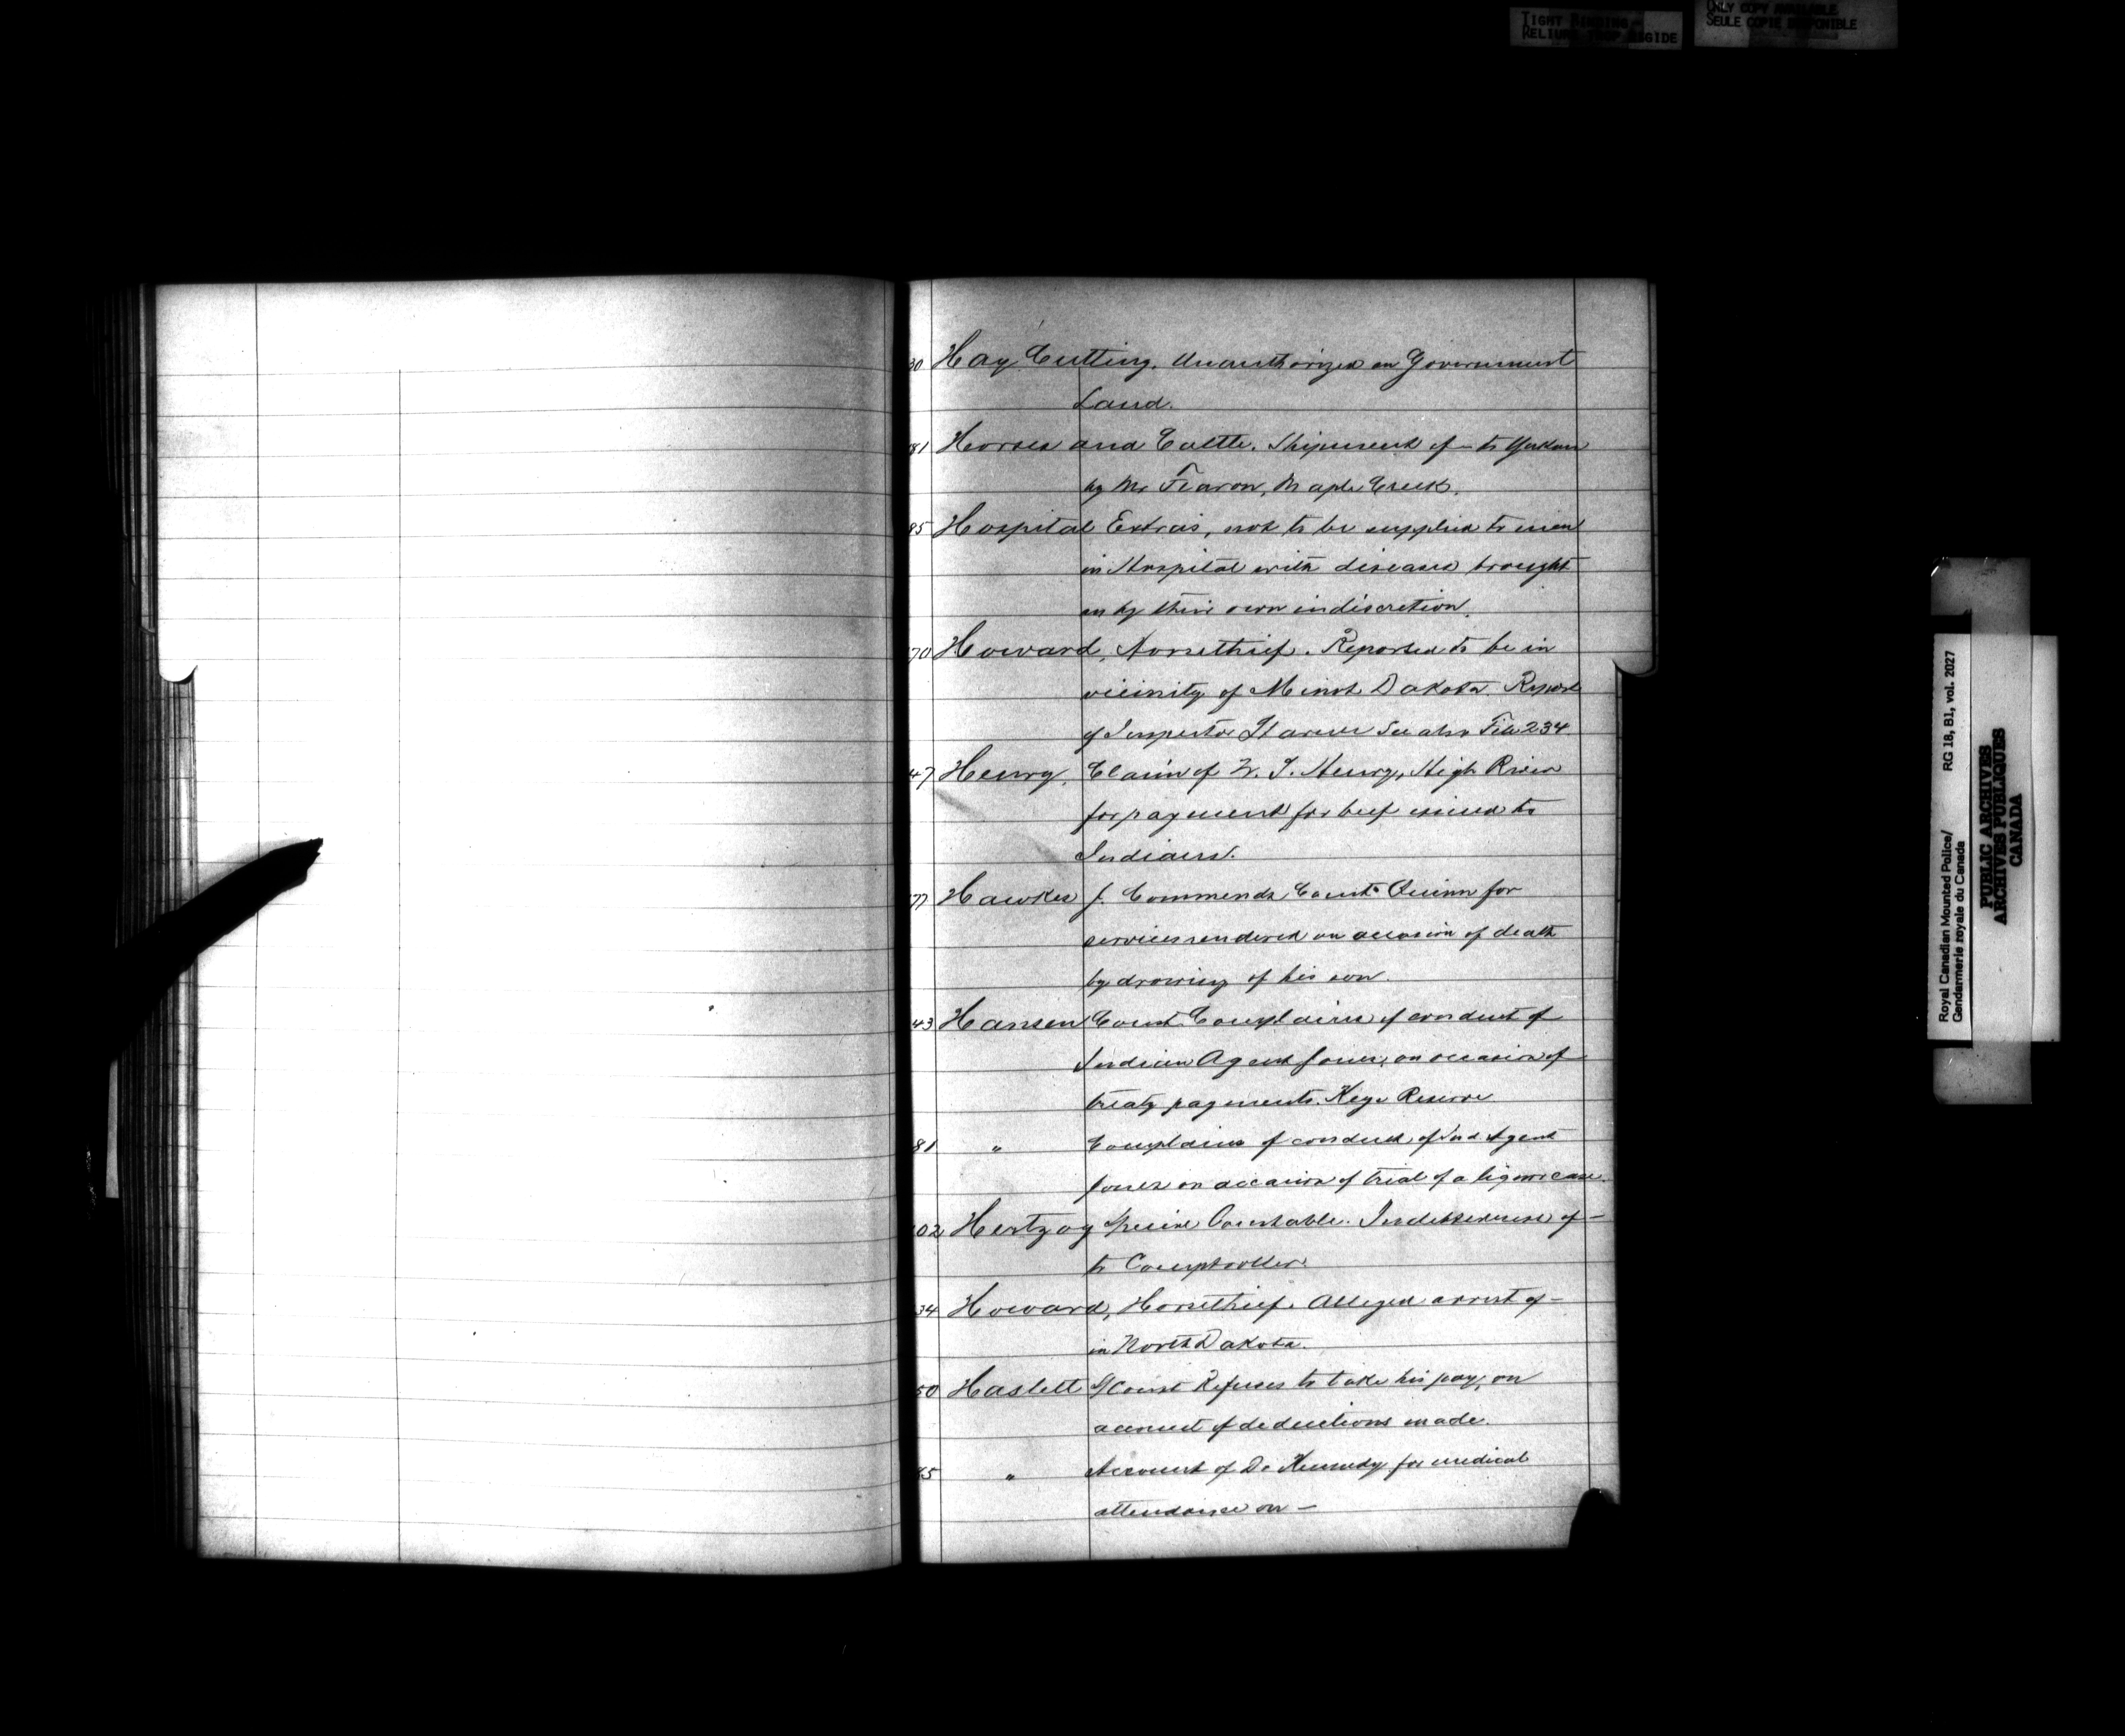 TIGHT BINDING
RELIURE TROP RIGIDE
ONLY COPY AVAILABLE
SEULE COPIE DISPONIBLE
30 Hay Cutting. Unauthorized on Government
Land.
81 Horses and Cattle. Shipment of – to Yukon
by Mr Fearon, Maple Creek.
85 Hospital Extras, not to be supplied to men
in Hospital with diseases brought
on by their own indiscretion.
70 Howard, Horsethief. Reported to be in
vicinity of Minot Dakota Report
of Inspector Starnes See also File 234
47 Henry, Claim of W. T. Henry, High River
for payment for beef issued to
Indians.
77 Hawkes J. Commends Const. Quinn for
services rendered on occasion of death
by drowing of his son.
43 Hansen Const. Complains of conduct of
Indian Agent Jones, on occasion of
treaty payments. Keys Reserve
81 " Complains of conduct of Ind Agent
Jones on occasion of trial of a liquor case.
02 Hertzog Special Constable. Indebtedness of –
to Comptroller.
34 Howard, Horsethief. Alleged arrest of –
in North Dakota.
50 Haslett S/Const Refuses to take his pay, on
account of deductions made.
85 " Account of Dr Kennedy for medical
attendance on –
Royal Canadian Mounted Police/ RG 18, B1, vol. 2027
Gendarmerie royale du Canada
PUBLIC ARCHIVES
ARCHIVES PUBLIQUES
CANADA